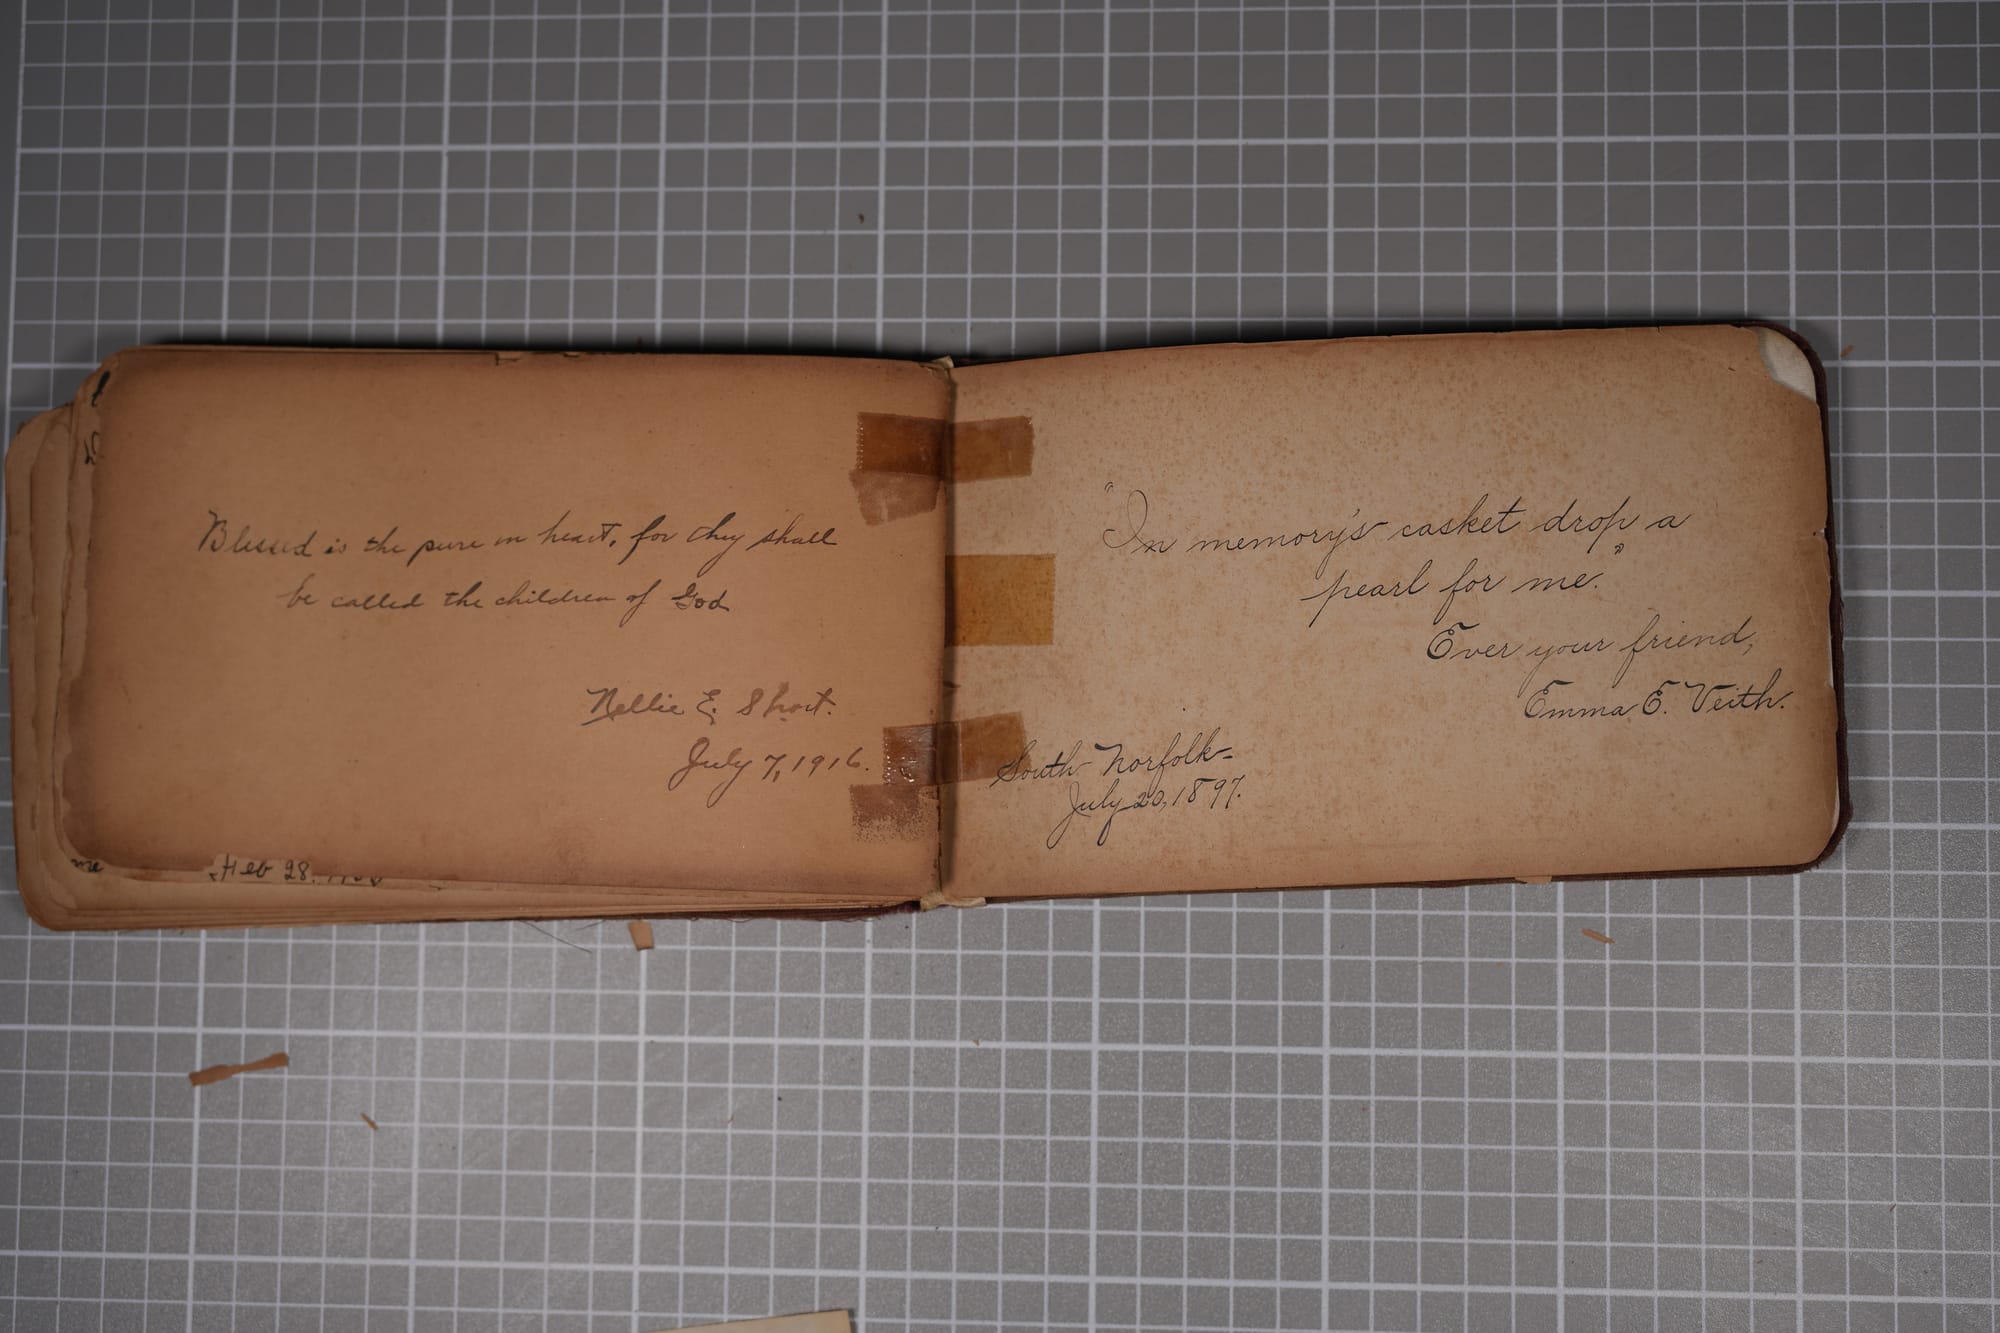 Blessed is the pure in heart, for they shall
be called the children of God
Nellie E. Short.
July 7, 1916.
me
Feb 28.
"In memory's casket drop a
pearl for me."
Ever your friend,
Emma E. Veith.
South Norfolk-
July 20, 1897.